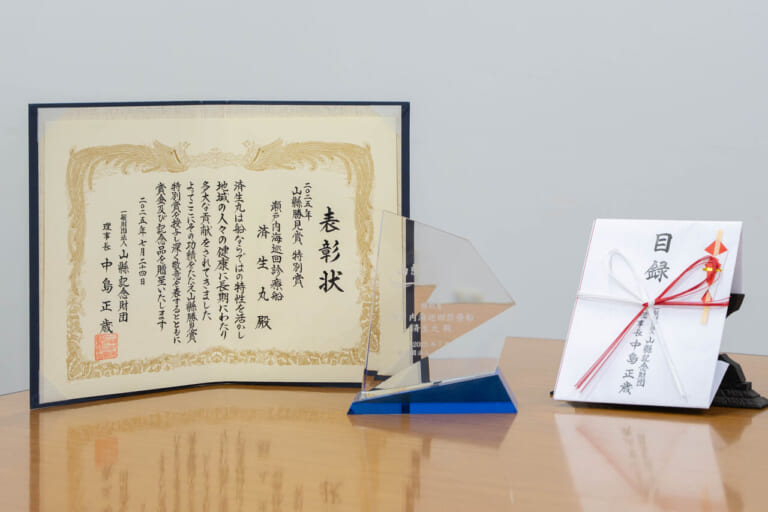 表彰状
二〇二五年
山縣勝見賞 特別賞
瀬戸内海巡回診療船
済生丸 殿
済生丸は船ならではの特性を活かし
地域の人々の健康に長期にわたり
多大な貢献をされてきました
よってここにその功績をたたえ山縣勝見賞
特別賞を授与し深く敬意を表するとともに
賞金及び記念品を贈呈いたします
二〇二五年七月二十四日
一般財団法人 山縣記念財団
理事長 中島正歳
内海巡回診療船
済生丸 殿
目録
山縣記念財団
理事長 中島正歳